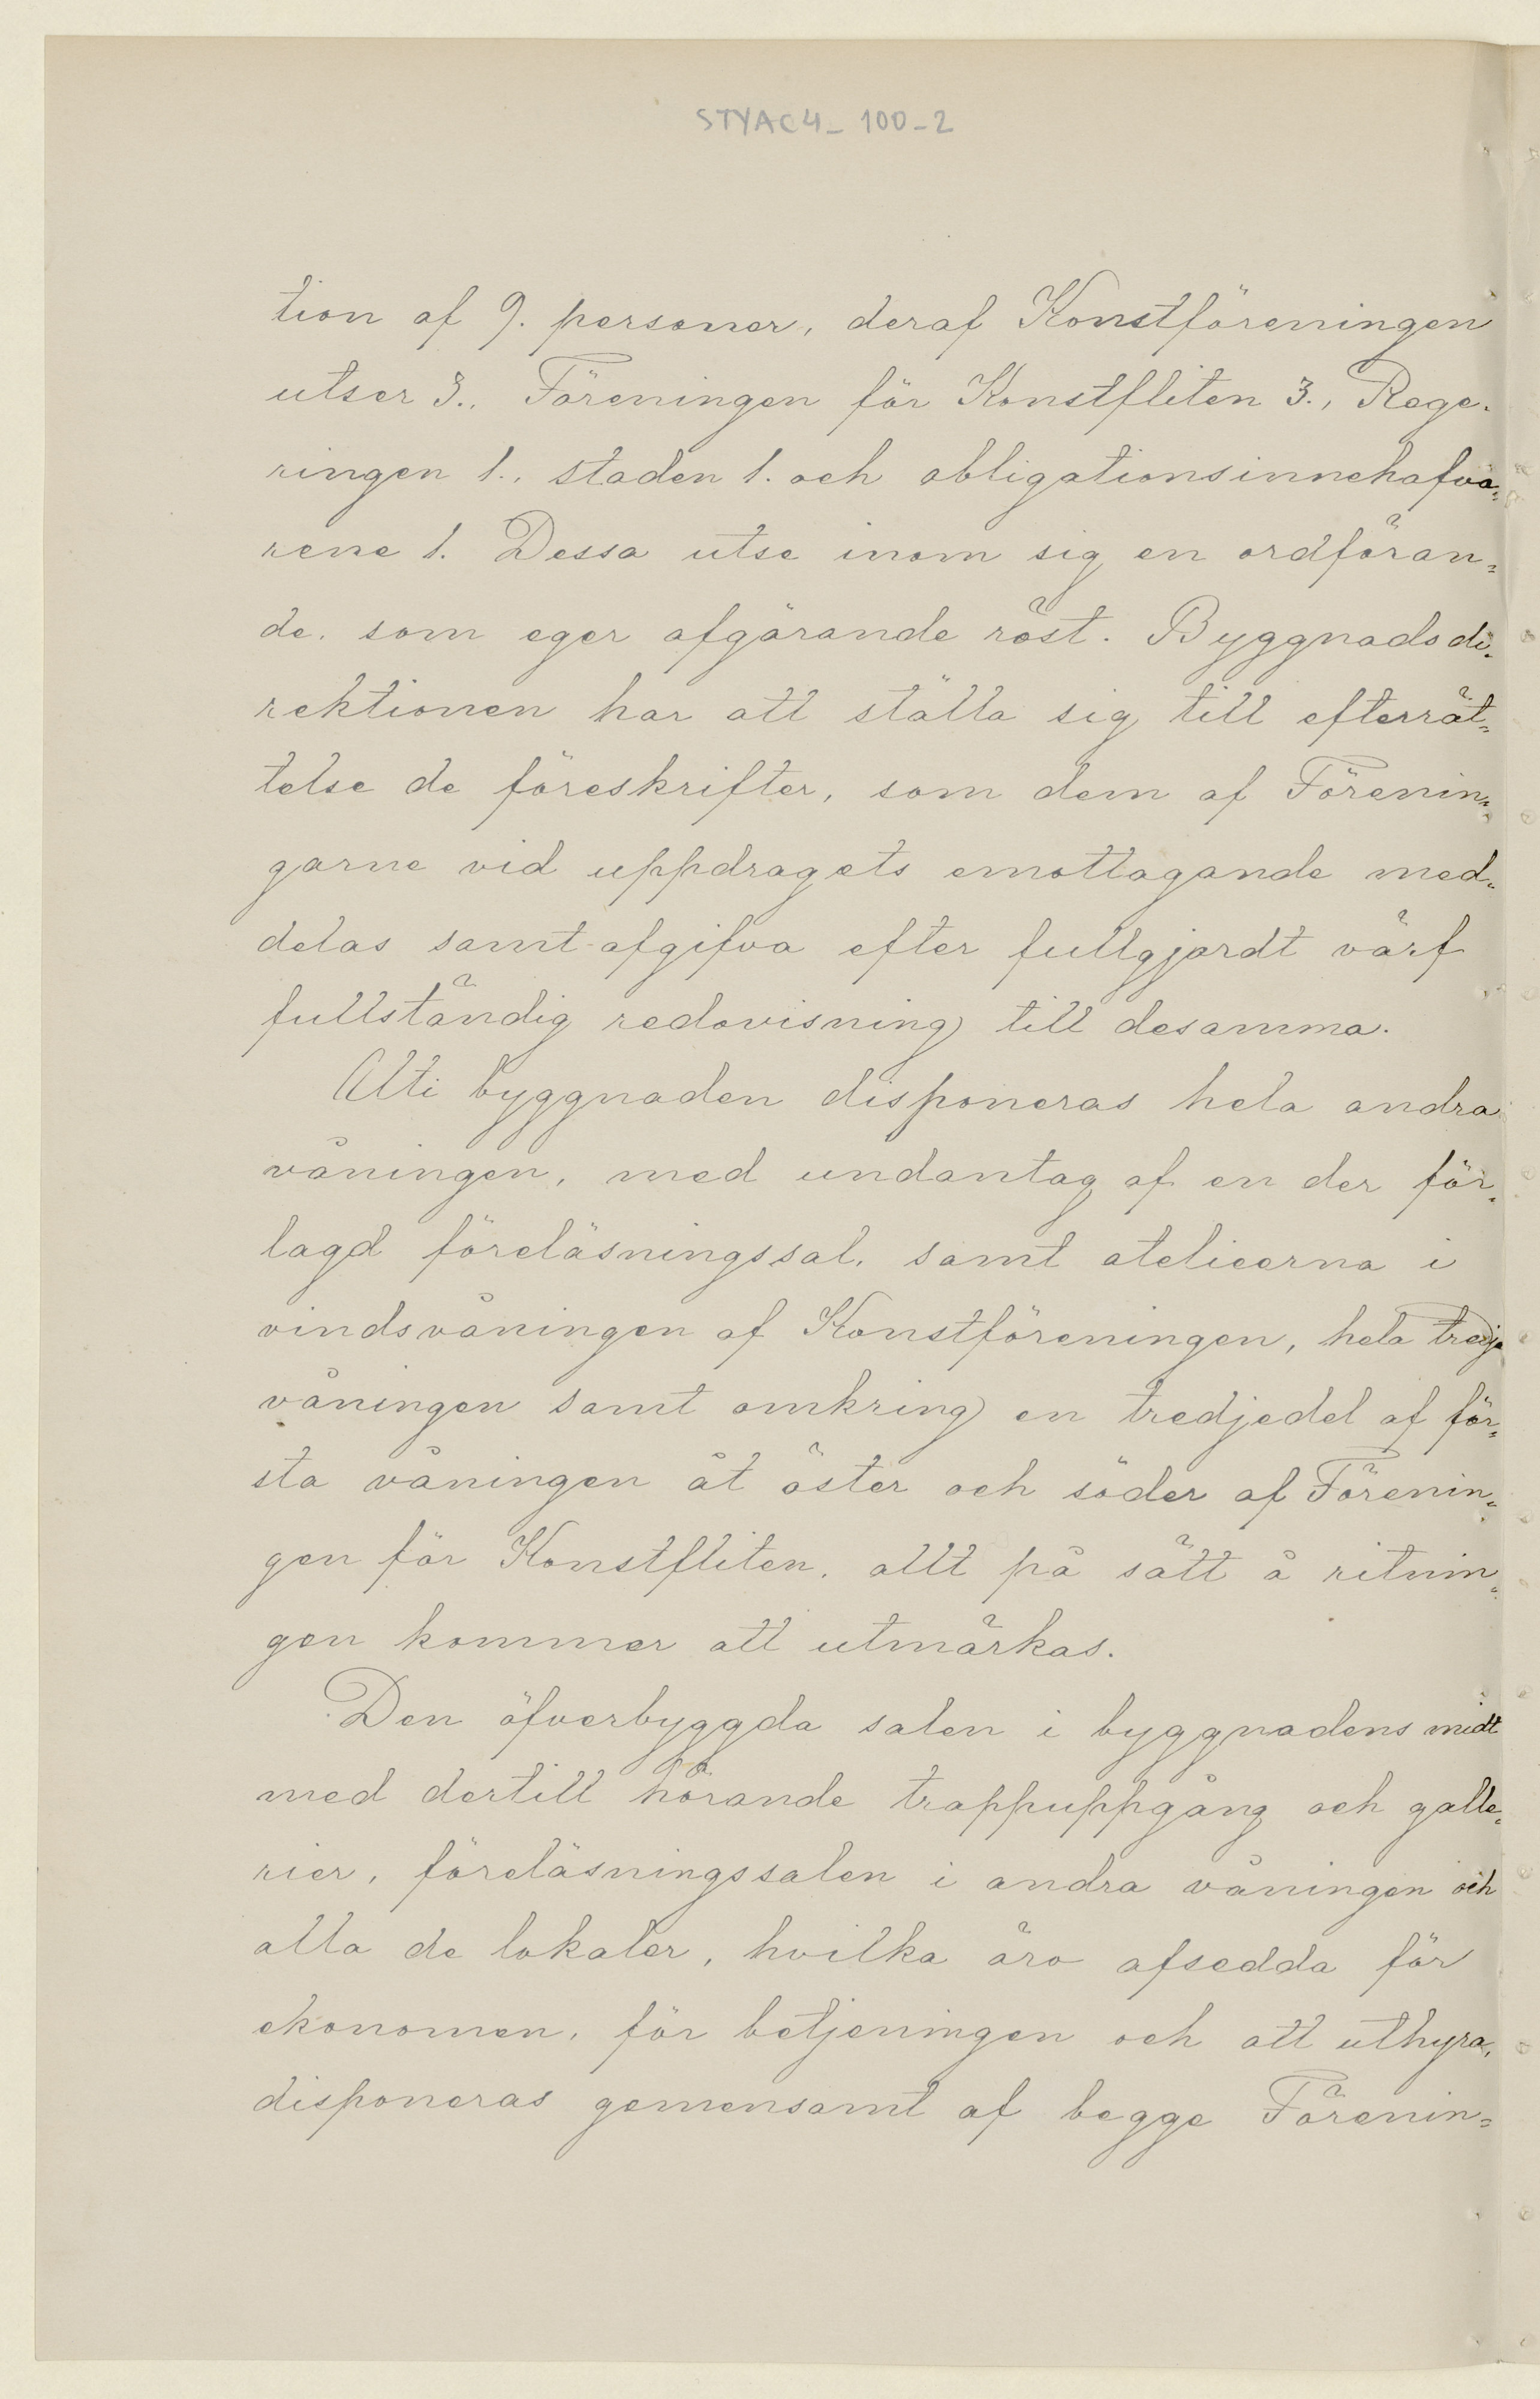 STYAC4_100_2
tion af 9. personer, deraf Konstföreningen
utser 3., Föreningen för Konstfliten 3., Rege-
ringen 1., staden 1. och obligationsinnehafva-
rene 1. Dessa utse inom sig en ordföran-
de, som eger afgörande röst. Byggnadsdi-
rektionen har att ställa sig till efterrät-
telse de föreskrifter, som dem af Förenin-
garne vid uppdragets emottagande med-
delas samt afgifva efter fullgjordt värf
fullständig redovisning till desamma.
Uti byggnaden disponeras hela andra
våningen, med undantag af en der för-
lagd föreläsningssal, samt atelieerna i
vindsvåningen af Konstföreningen, hela tredje
våningen samt omkring en tredjedel af för-
sta våningen åt öster och söder af Förenin-
gen för Konstfliten, allt på sätt å ritnin-
gen kommer att utmärkas.
Den öfverbyggda salen i byggnadens midt
med dertill hörande trappuppgång och galle-
rier, föreläsningssalen i andra våningen och
alla de lokaler, hvilka äro afsedda för
ekonomen, för betjeningen och att uthyra,
disponeras gemensamt af begge Förenin-